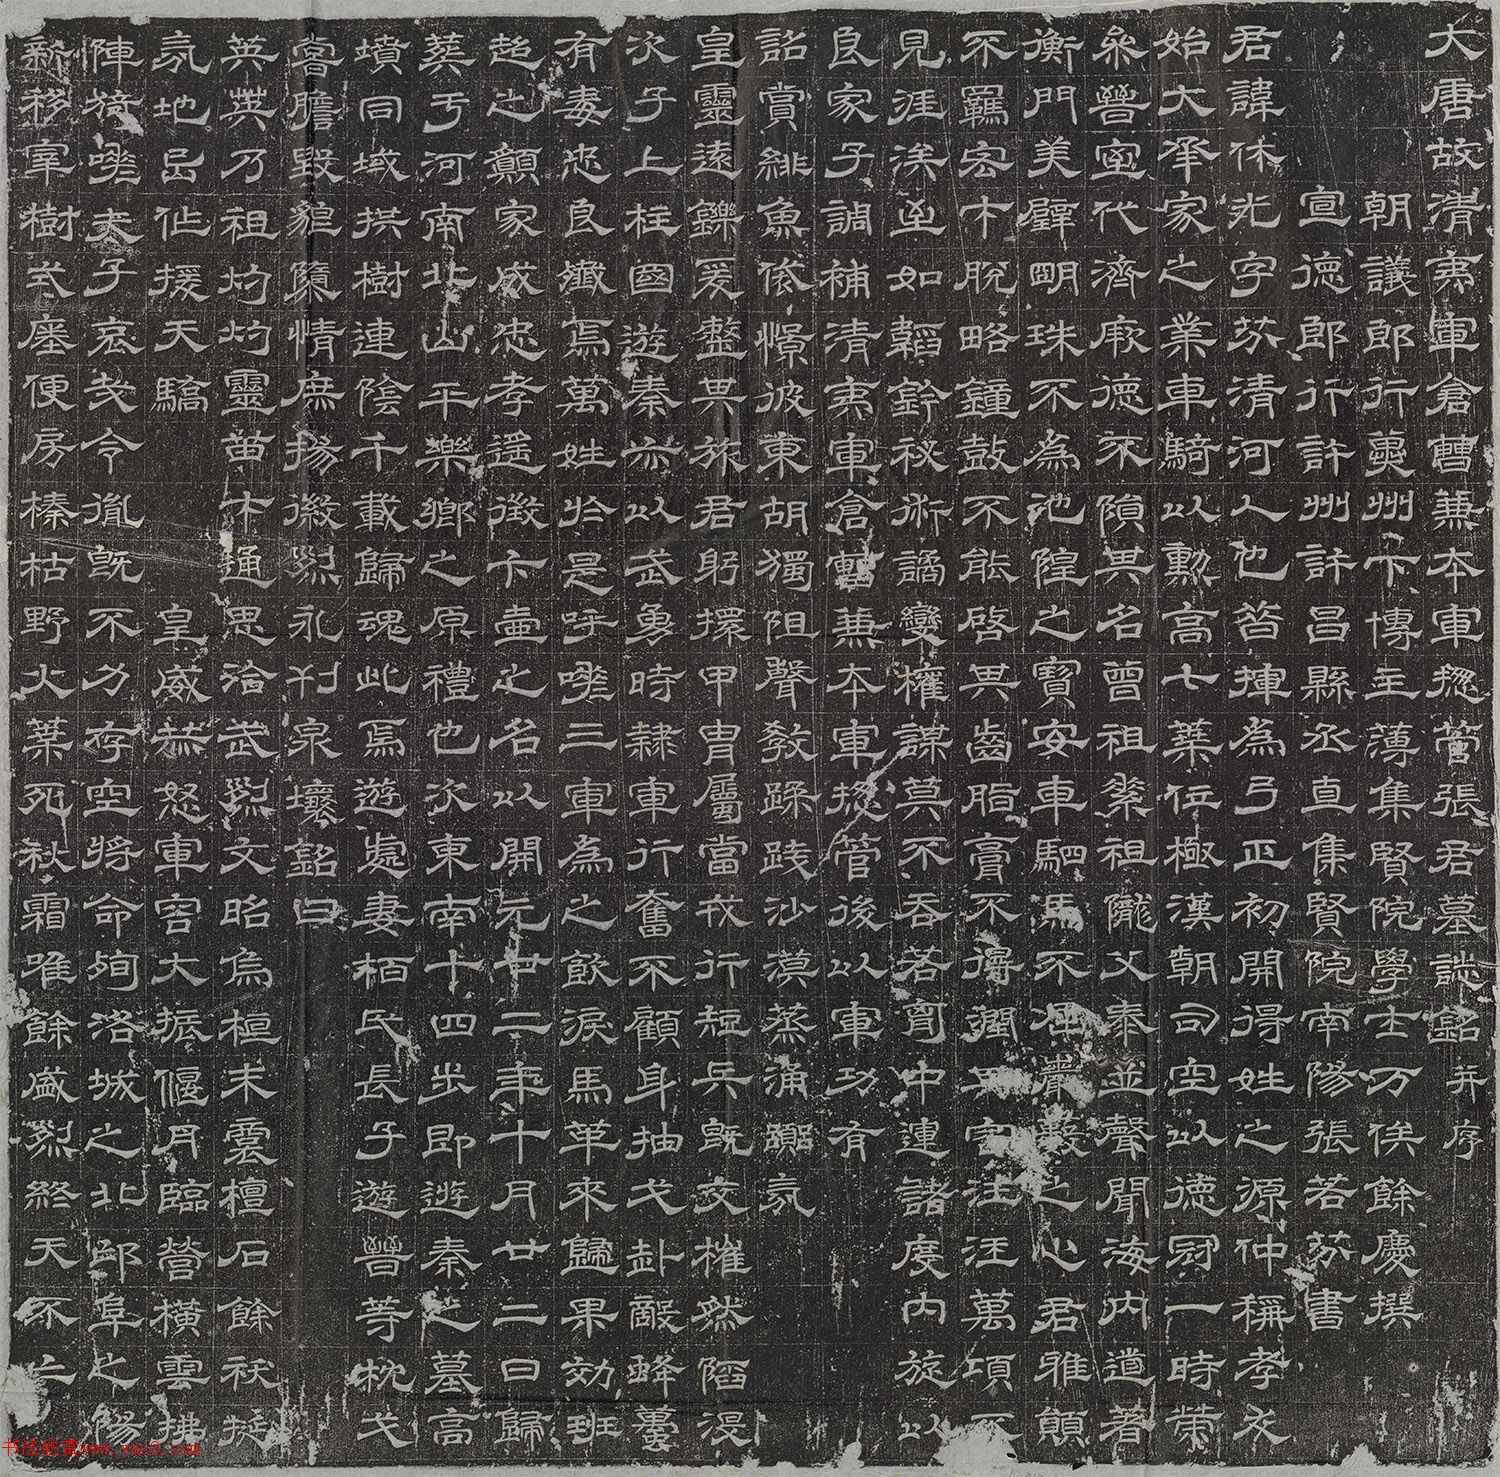 大唐故清夷軍倉曹兼本軍摠管張君墓誌銘 并序
朝議郎行冀州下博主薄集賢院學士万俟餘慶撰
宣德郎行許州許昌縣丞直集賢院南陽張若芬書
君諱休光字芬清河人也昔揮為弓正初開得姓之源仲稱孝友
始大承家之業車騎以勳高七葉位極漢朝司空以德冠一時榮
參晉室代濟厥德不隕其名曾祖 祖 父泰並聲聞海內道著
衡門美璧明珠不為池隍之寶安車駟馬不 之心君雅韻
不羈宏才脫略鐘鼓不能啓其齒脂膏不得潤其 汪汪萬頃
見涯涘至如韜鈐秘術譎變權謀莫不吞若胷中運諸度內旋以
良家子調補清夷軍倉曹兼本軍摠管後以軍功有
詔賞緋魚俄憬彼東胡獨阻聲教蹂踐沙漠蒸涌 氛
皇靈遠鑠爰整其旅君躬擐甲冑屬當戎行短兵既交摧然陷沒
次子上柱國遊秦亦以武勇時隸軍行奮不顧身抽戈赴敵蜂蠆
有毒忠良殲焉萬姓於是呼嗟三軍為之飲淚馬革來歸果効班
超之願家成忠孝遥徵卞壼之名以開元廿二年十月廿二日歸
葬于河南北山平樂鄉之原禮也次東南十四步即遊秦之墓高
墳同域拱樹連陰千載歸魂此焉遊處妻栢氏長子遊晉等枕戈
嘗膽毀貌隳情庶揚徽烈永刊泉壤銘曰
英英乃祖灼灼靈苗才通思洽武烈文昭烏桓未襄檀石餘祅挻
氛地邑作援天驕 皇威恭怒軍容大振偃月臨營橫雲拂
陣猗嗟夫子哀哉令胤既不乃存空將命殉洛城之北邙阜之陽
新移宰樹式座便房榛枯野火葉死秋霜唯餘盛烈終天不亡
书法欣赏www.yac8.com